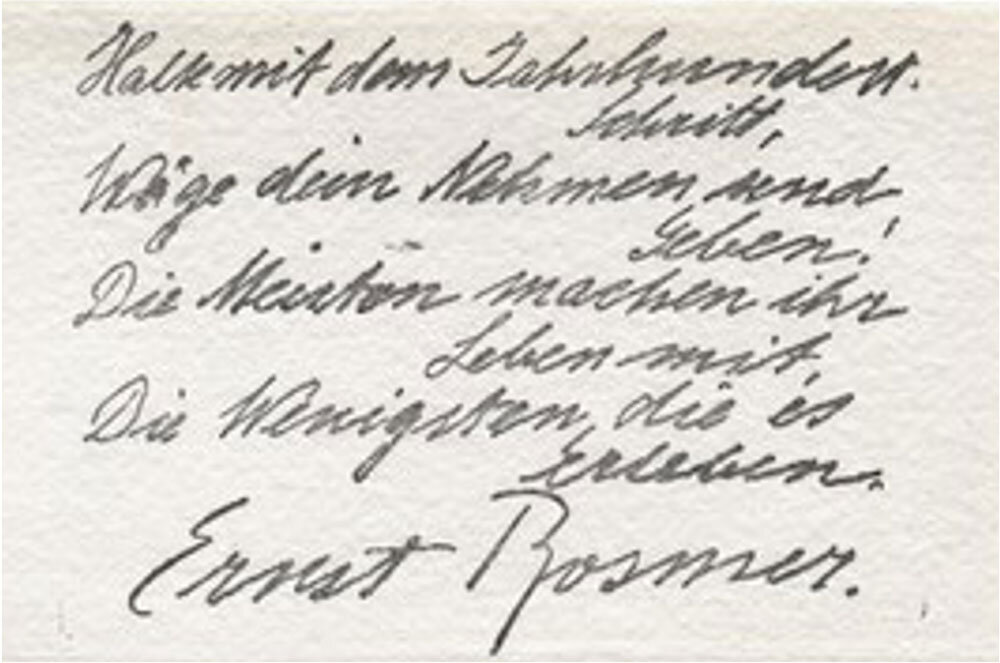 Halte mit dem Jahrhundert
Schritt,
Wäge dein Nehmen und
Geben!
Die Meisten machen ihr
Leben mit,
Die Wenigsten, die es
erleben.
Ernst Rosmer.